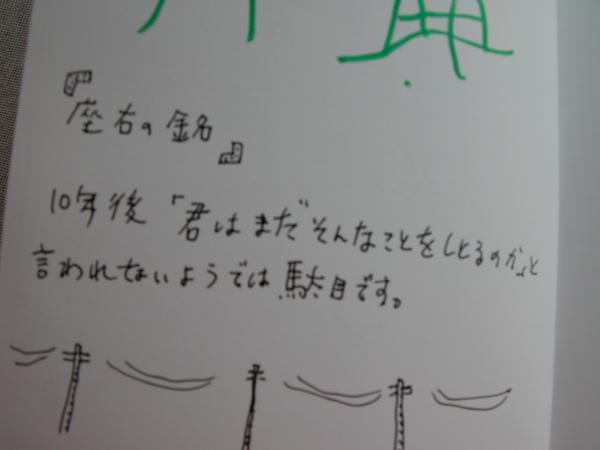 『座右の銘』
10年後「君はまだそんなことをしとるのか」と
言われないようでは駄目です。